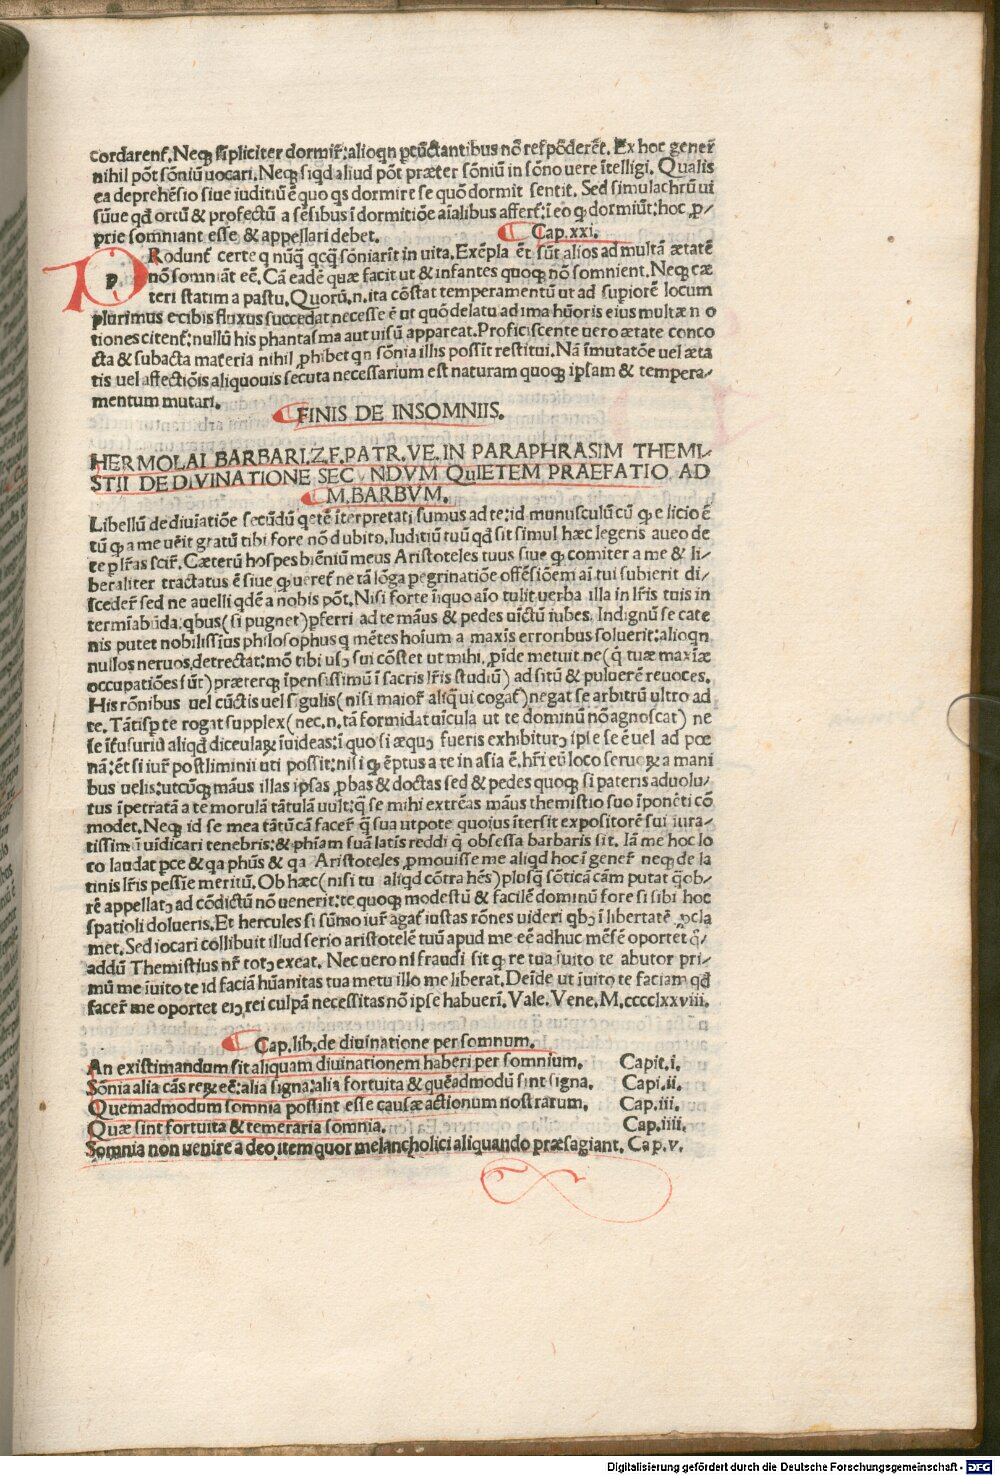 cordarent̃. Neqꝫ sĩpliciter dormir̃: alioqn pcũctantibus nõ respõderẽt. Ex hoc gener̃
nihil põt sõniũ uocari. Neqꝫ siqd aliud põt præter sõniũ in sõno uere ĩtelligi. Qualis
ea deprehẽsio siue iuditiũ ẽ quo qs dormire se quõ dormit sentit. Sed simulachrũ ui
sũue qđ ortũ & profectũ a sẽsibus ĩ dormitiõe aĩalibus affert̃: ĩ eo ꝙ dormiũt: hoc ꝓ/
prie somniant esse & appellari debet.
Cap. xxi.
pRodunt̃ certe q nũq̃ qcq̃ sõniarĩt in uita. Exẽpla ẽt sũt alios ad multã ætatẽ
nõ somniãt eẽ. Cã eadẽ quæ facit ut & infantes quoqꝫ nõ somnient. Neqꝫ cæ
teri statim a pastu. Quorũ .n. ita cõstat temperamentũ ut ad supiorẽ locum
plurimus e cibis fluxus succedat necesse ẽ ut quõ delatu ad ima hũoris eius multæ n o
tiones citent̃: nullũ his phantasma aut uisũ appareat. Proficiscente uero ætate conco
cta & subacta materia nihil ꝓhibet qn sõnia illis possĩt restitui. Nã ĩmutatõe uel æta
tis uel affectiõis aliquouis secuta necessarium est naturam quoqꝫ ipsam & tempera/
mentum mutari.
FINIS DE INSOMNIIS.
HERMOLAI BARBARI. Z. F. PATR. VE. IN PARAPHRASIM THEMI/
STII DE DIVINATIONE SECVNDVM QuIETEM PRAEFATIO AD
M. BARBVM.
Libellũ de diuiatiõe secũdũ qetẽ ĩterpretati sumus ad te: id munusculũ cũ ꝙ e licio ẽ
tũ ꝙ a me uẽit gratũ tibi fore nõ dubito. Iuditiũ tuũ qđ sit simul hæc legeris aueo de
te p lr̃as scir̃. Cæterũ hospes biẽniũ meus Aristoteles tuus siue ꝙ comiter a me & li/
beraliter tractatus ẽ siue ꝙ ueret̃ ne tã lõga pegrinatiõe offẽsiõem aĩ tui subierit di/
sceder̃ sed ne auelli qdẽ a nobis põt. Nisi forte ĩiquo aĩo tulit uerba illa in lr̃is tuis in
termĩabũda: qbus (si pugnet) pferri ad te mãus & pedes uĩctũ iubes. Indignũ se cate
nis putet nobilissĩus philosophus q mẽtes hoĩum a maxĩs erroribus soluerit: alioqn
nullos neruos detrectat: mõ tibi usꝯ sui cõstet ut mihi. ꝓĩde metuit ne (q̃ tuæ maxĩæ
occupatiões sũt) præterqꝫ ĩpensissimũ ĩ sacris lr̃is studiũ) ad sitũ & puluerẽ reuoces.
His rõnibus uel cũctis uel sigulis (nisi maior̃ aliq̃ ui cogat̃) negat se arbitrũ ultro ad
te. Tãtisp te rogat supplex (nec .n. tã formidat uĩcula ut te dominũ nõ agnoscat) ne
se ĩt̃usuriũ aliqđ diceulaꝝ ĩuideas: ĩ quo si æquꝯ fueris exhibiturꝯ ipse se ẽ uel ad pœ
nã: ẽt si iur̃ postliminii uti possit: nisi ꝙ ẽptus a te in asia ẽ. hr̃i eũ loco seruoꝝ a mani
bus uelis: utcũqꝫ mãus illas ipsas ꝓbas & doctas sed & pedes quoqꝫ si pateris aduolu/
tus ĩpetratã a te morulã tãtulã uult: q̃ se mihi extrẽas mãus themistio suo ĩponẽti cõ
modet. Neqꝫ id se mea tãtũ cã facer̃ q̃ sua utpote quoius ĩtersit expositorẽ sui iura/
tissim̃ ĩ uĩdicari tenebris: & phĩam suã latĩs reddi q̃ obsessa barbaris sit. Iã me hoc lo
co laudat pce & qa phũs & qa Aristoteles ꝓmouisse me aliqđ hoc ĩ gener̃ neqꝫ de la
tinis lr̃is pessĩe meritũ. Ob hæc (nisi tu aliqđ cõtra hẽs) plusq̃ sõticã cãm putat q̃ob/
rẽ appellatꝯ ad cõdictũ nõ uenerit: te quoqꝫ modestũ & facilẽ dominũ fore si sibi hoc
spatioli dolueris. Et hercules si sũmo iur̃ agat̃ iustas rõnes uideri qbꝯ ĩ libertatẽ ꝓcla
met. Sed iocari collibuit illud serio aristotelẽ tuũ apud me eẽ adhuc mẽsẽ oportet q̃/
addũ Themistius nr̃ totꝯ exeat. Nec uero ni fraudi sit ꝙ re tua ĩuito te abutor pri/
mũ me ĩuito te id faciã hũanitas tua metu illo me liberat. Deĩde ut ĩuito te faciam qđ
facer̃ me oportet eiꝯ rei culpã necessitas nõ ipse habuerĩ. Vale. Vene. M.cccclxxviii.
Cap. lib. de diuinatione per somnum.
An existimandum sit aliquam diuinationem haberi per somnium. Capit. i.
Sõnia alia cãs reꝝ eẽ: alia signa: alia fortuita & quẽadmodũ sint signa. Capi. ii.
Quemadmodum somnia possint esse causæ actionum nostrarum. Cap. iii.
Quæ sint fortuita & temeraria somnia. Cap. iiii.
Somnia non uenire a deo item quor melancholici aliquando præsagiant. Cap. v.
Digitalisierung gefördert durch die Deutsche Forschungsgemeinschaft - DFG